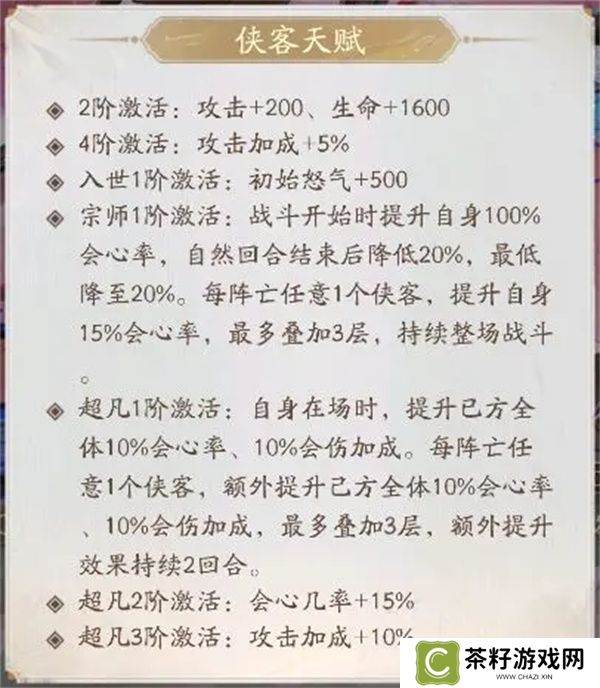 侠客天赋
2阶激活：攻击+200、生命+1600
4阶激活：攻击加成+5%
入世1阶激活：初始怒气+500
宗师1阶激活：战斗开始时提升自身100%
会心率，自然回合结束后降低20%，最低
降至20%。每阵亡任意1个侠客，提升自身
15%会心率，最多叠加3层，持续整场战斗
。
超凡1阶激活：自身在场时，提升己方全
体10%会心率、10%会伤加成。每阵亡任
意1个侠客，额外提升己方全体10%会心率
、10%会伤加成，最多叠加3层，额外提升
效果持续2回合。
超凡2阶激活：会心几率+15%
超凡3阶激活：攻击加成+10%
茶籽游戏网
WWW.CHAZI.XIN